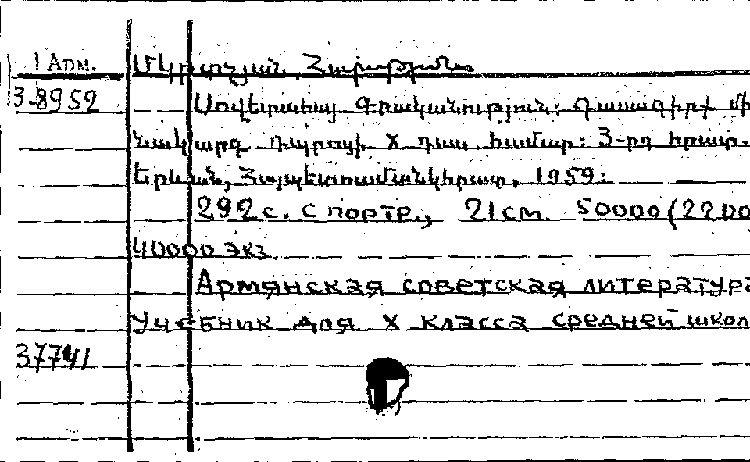 1 Адм.
Մկրտչյան, Հարություն
3-8952
Սովետահայ գրականություն: Դասագիրք մի
նակարգ դպրոցի X դաս. համար: 3-րդ հրատ.
Երևան, Հայպետուսմանկհրատ, 1959:
292 с. с портр., 21 см. 50000 (22 00
40000 экз.
Армянская советская литература
Учебник для X класса средней школ
37741